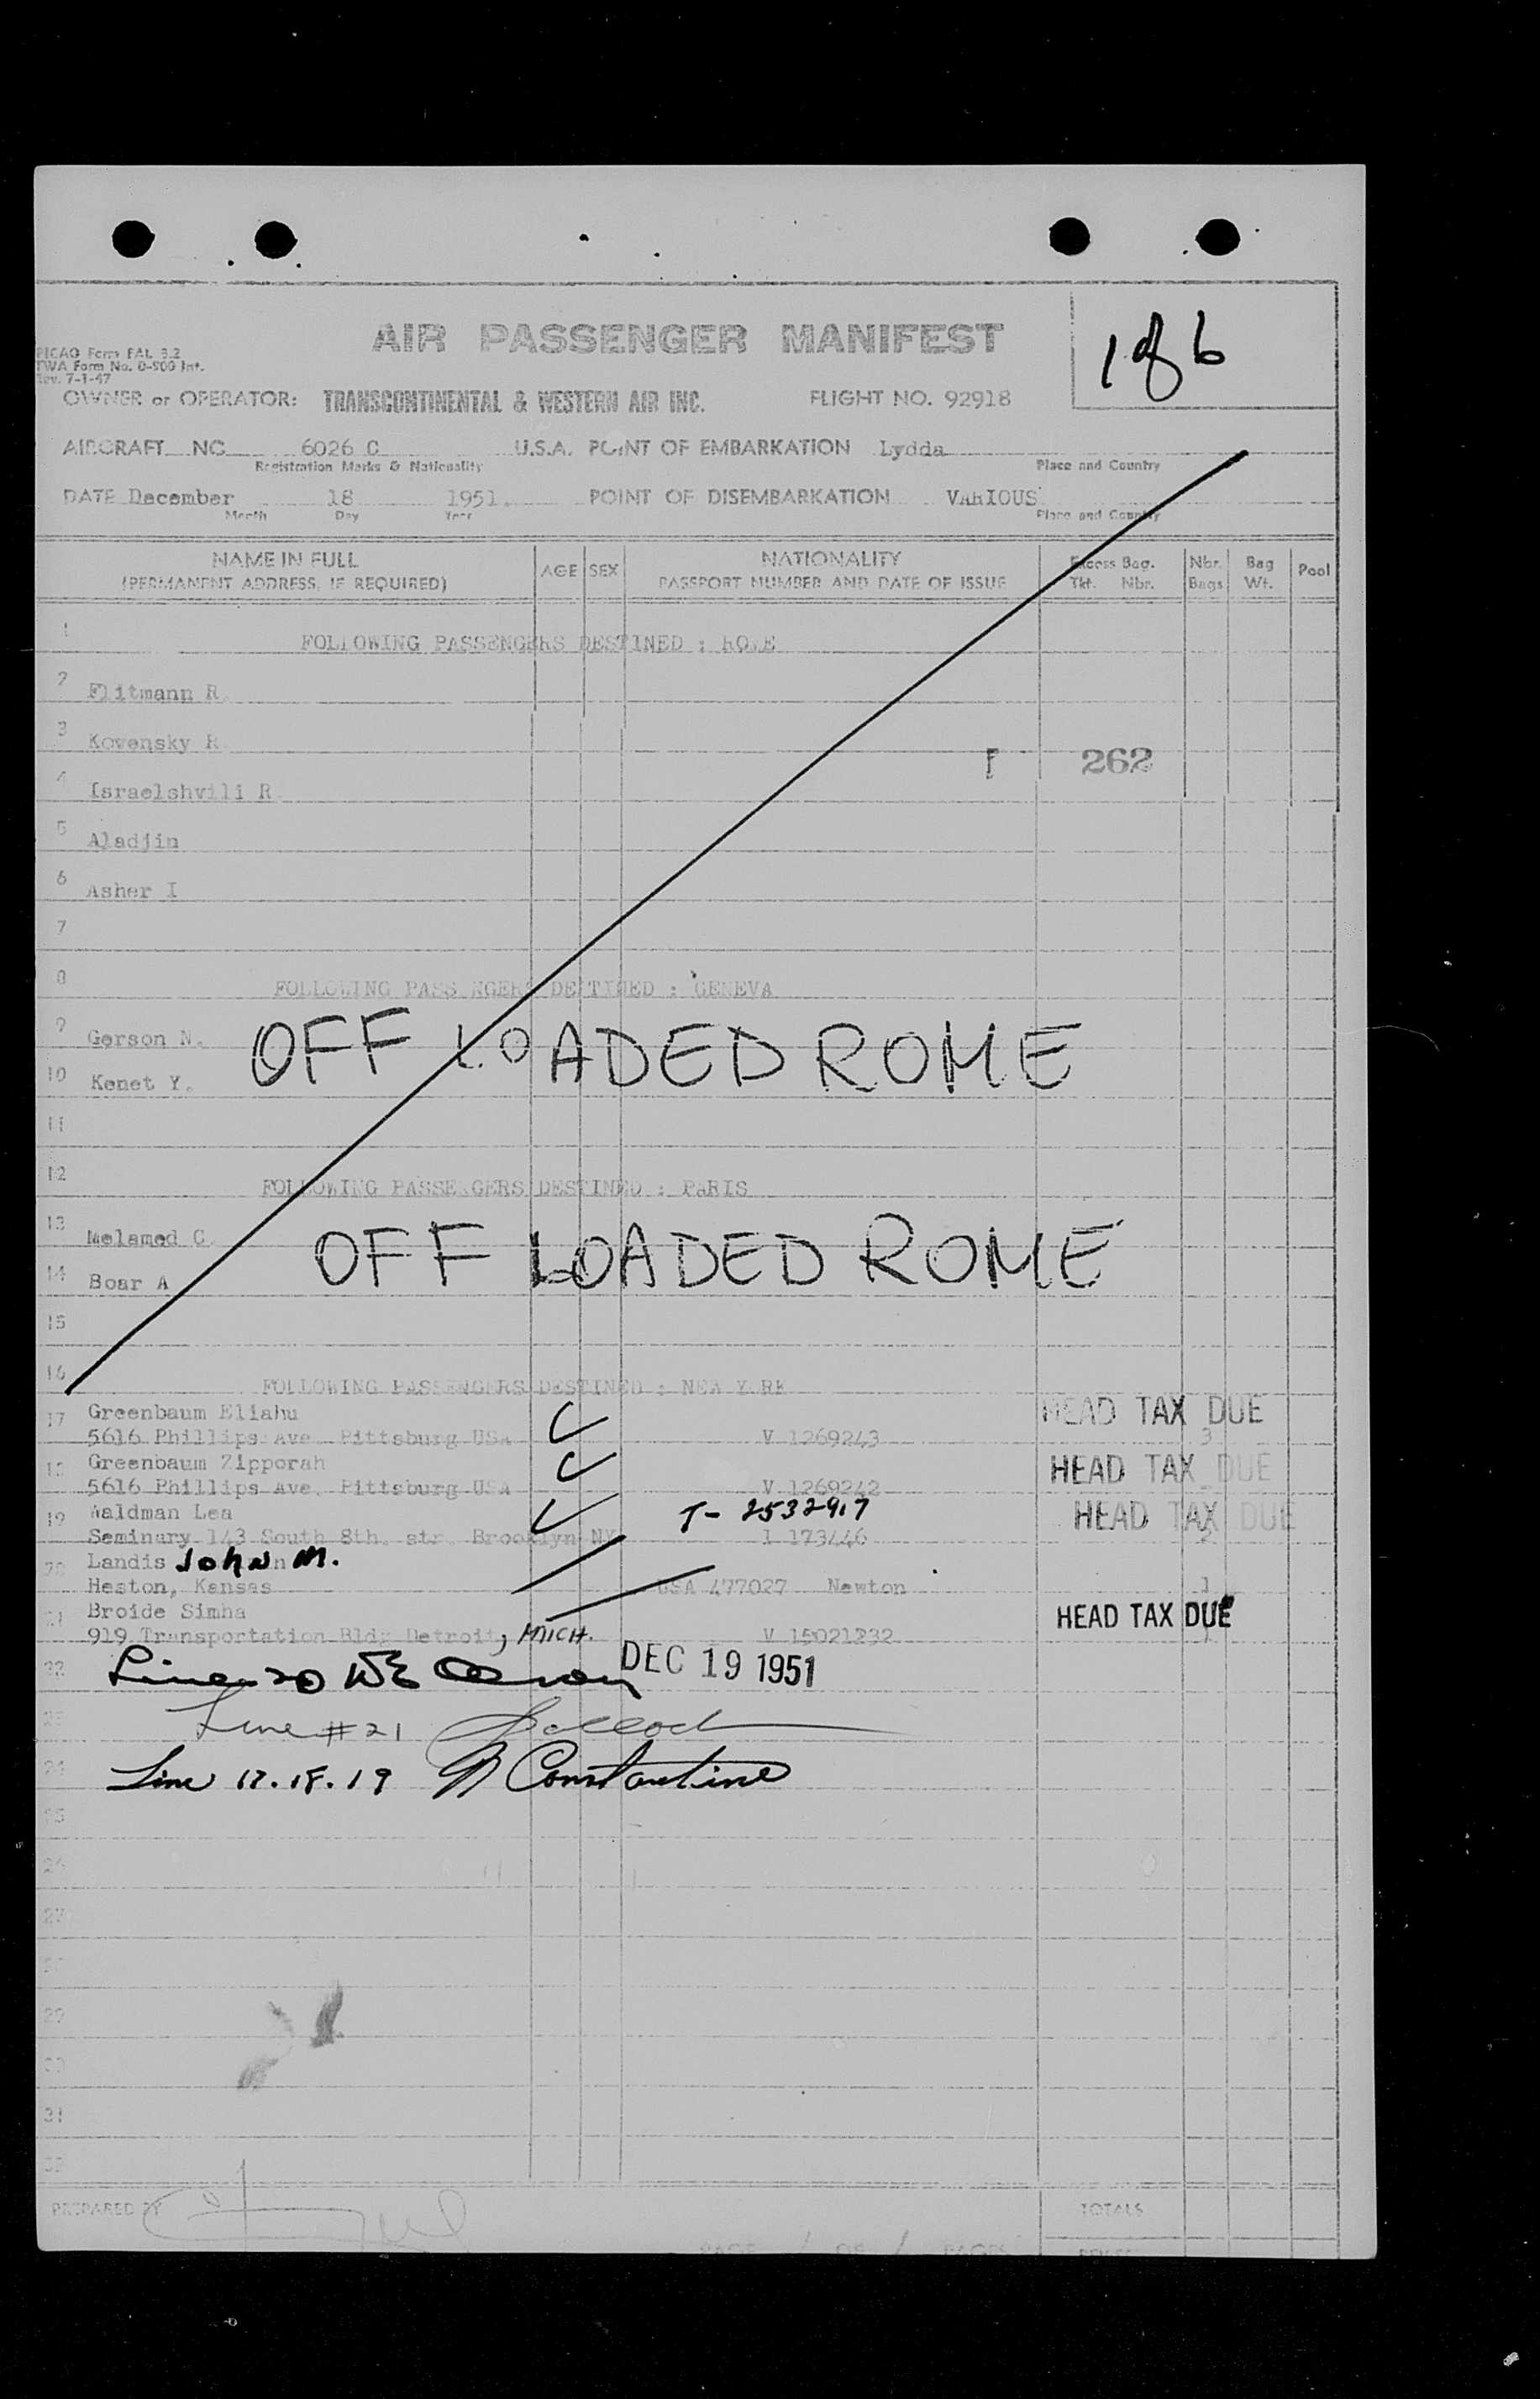 AIR PASSENGER MANIFEST
1 of 6
PICAO Form FAL 3.2
TWA Form No. 0-500 Int.
Rev. 7-1-47
OWNER or OPERATOR: TRANSCONTINENTAL & WESTERN AIR INC. FLIGHT NO. 92918
AIRCRAFT NC 6026 C U.S.A. POINT OF EMBARKATION Lydda
Registration Marks & Nationality Place and Country
DATE December 18 1951. POINT OF DISEMBARKATION VARIOUS
Month Day Year Place and Country
NAME IN FULL AGE SEX NATIONALITY Excess Bag. Nbr. Bag Pool
(PERMANENT ADDRESS, IF REQUIRED) PASSPORT NUMBER AND DATE OF ISSUE Tkt. Nbr. Bags Wt.
1 FOLLOWING PASSENGERS DESTINED : ROME
2 Flitmann R.
3 Kovensky R
262
4 Israelshvili R.
5 Aladjin
6 Asher I
7
8 FOLLOWING PASSENGERS DESTINED : GENEVA
9 Gerson N. OFF LOADED ROME
10 Kenet Y.
11
12 FOLLOWING PASSENGERS DESTINED : PARIS
13 Melamed C. OFF LOADED ROME
14 Boar A
15
16 FOLLOWING PASSENGERS DESTINED : NEW YORK
17 Greenbaum Eliahu HEAD TAX DUE
5616 Phillips Ave. Pittsburg USA V 1269243 3
18 Greenbaum Zipporah HEAD TAX DUE
5616 Phillips Ave. Pittsburg USA V 1269242
19 Waldman Lea T- 2532917 HEAD TAX DUE
Seminary 143 South 8th. str. Brooklyn NY 1 173446 2
20 Landis John M.
Heston, Kansas USA 477027 Newton 1
21 Broide Simha HEAD TAX DUE
919 Transportation Bldg Detroit, MICH. V 15021232 1
22 Line 20 DEC 19 1951
23 Line #21
24 Line 17.18.19 Constantine
25
26
27
28
29
30
31
32
PREPARED BY TOTALS
PAGE 1 OF 1 PAGES